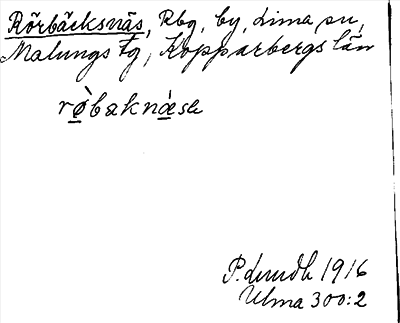 Rörbäcksnäs, Rbg, by, Lima sn,
Malungs tg, Kopparbergs län
rø̀baknǽsə
P. Lundh 1916
Ulma 300:2